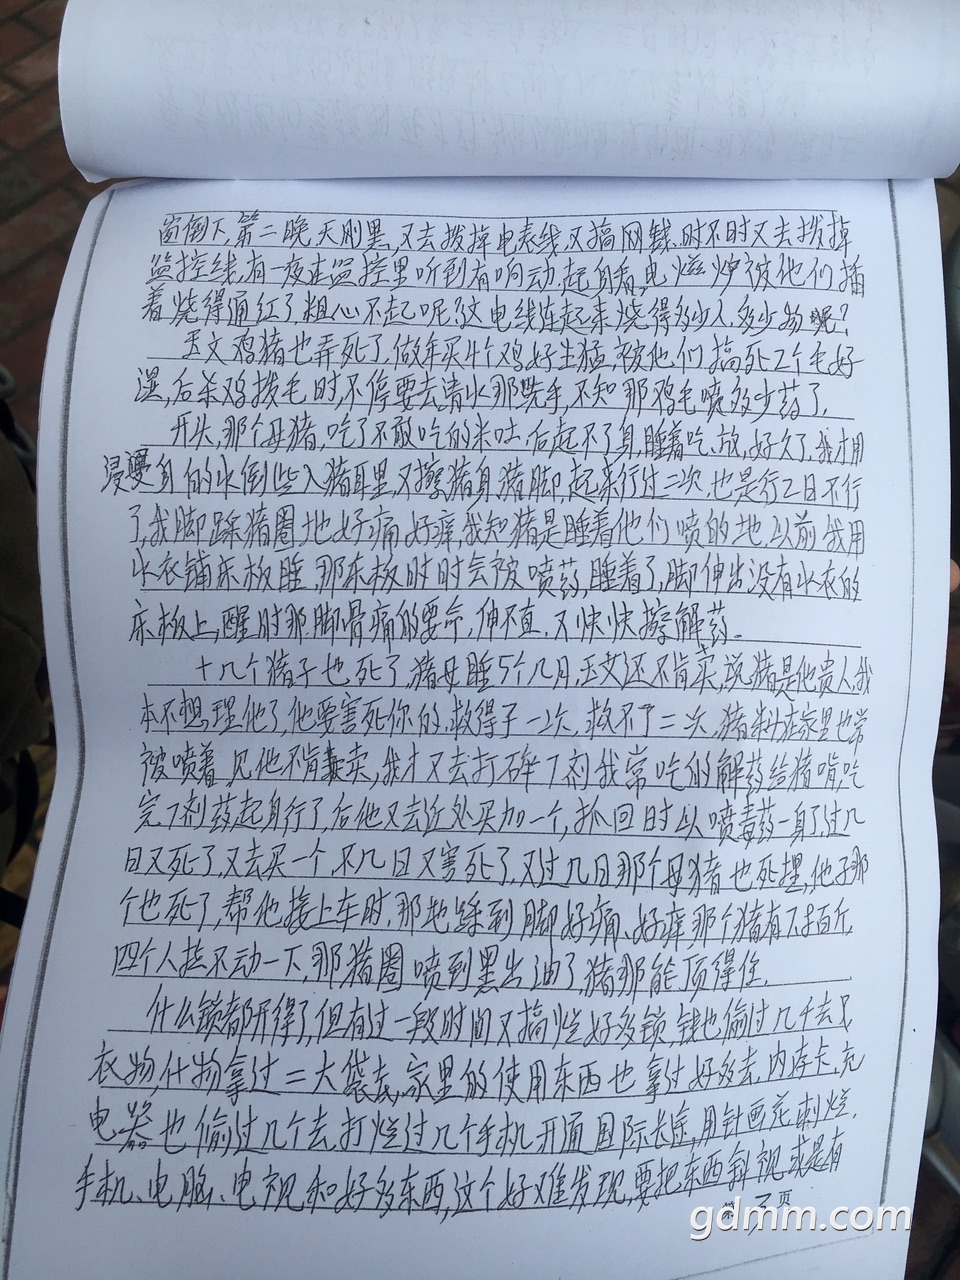 窗倒下,第二晚,天刚黑,又去拨掉电表线,又搞网线,时不时又去拨掉
监控线,有一夜在监控里听到有响动,起身看,电磁炉被他们插
着烧得通红了,粗心不起呢?这电线连起来烧得多少人,多少物呢?
玉文鸡猪也弄死了,做年买4个鸡好生猛,被他们搞死2个毛好
湿,后杀鸡拨毛时,不停要去清水那洗手,不知那鸡毛喷多少药了,
开头,那个母猪,吃了不敢吃的米吐,后起不了身,睡着吃,放,好久了,我才用
浸身的水倒些入猪耳里,又擦猪身猪脚,起来行过二次,也是行2日不行
了,我脚踩猪圈地好痛好痒,我知猪是睡着他们喷的地,以前我用
水衣铺床板睡,那床板时时会被喷药,睡着了,脚伸出没有水衣的
床板上,醒时那脚骨痛的要命,伸不直,又快快擦解药。
十几个猪子也死了,猪母睡5个几月,玉文还不肯卖,说猪是他贵人,我
本不想理他了,他要害死你的,救得了一次,救不了二次,猪料在家里也常
被喷着,见他不肯卖,我才又去打碎了剂我常吃的解药给猪啃,吃
完了剂药起身行了,后他又去近处买加一个,抓回时以喷毒药一身了,过几
日又死了,又去买一个,不几日又害死了,又过几日那个母猪也死埋,他子那
个也死了,帮他接上车时,那地踩到脚好痛、好痒那个猪有几百斤,
四个人抬不动一下,那猪圈喷到黑出油了,猪那能顶得住,
什么锁都开得了,但有过一段时间又搞烂好多锁,钱也偷过几千去,
衣物,什物拿过二大袋去,家里的使用东西也拿过好多去,内存卡,充
电器也偷过几个去,打烂过几个手机开通国际长途,用针画花刺烂,
手机、电脑、电视和好多东西,这个好难发现,要把东西斜视或是有
第3页
gdmm.com